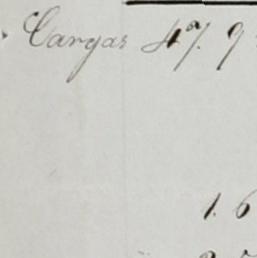 Cargas 47. 9
1. 6